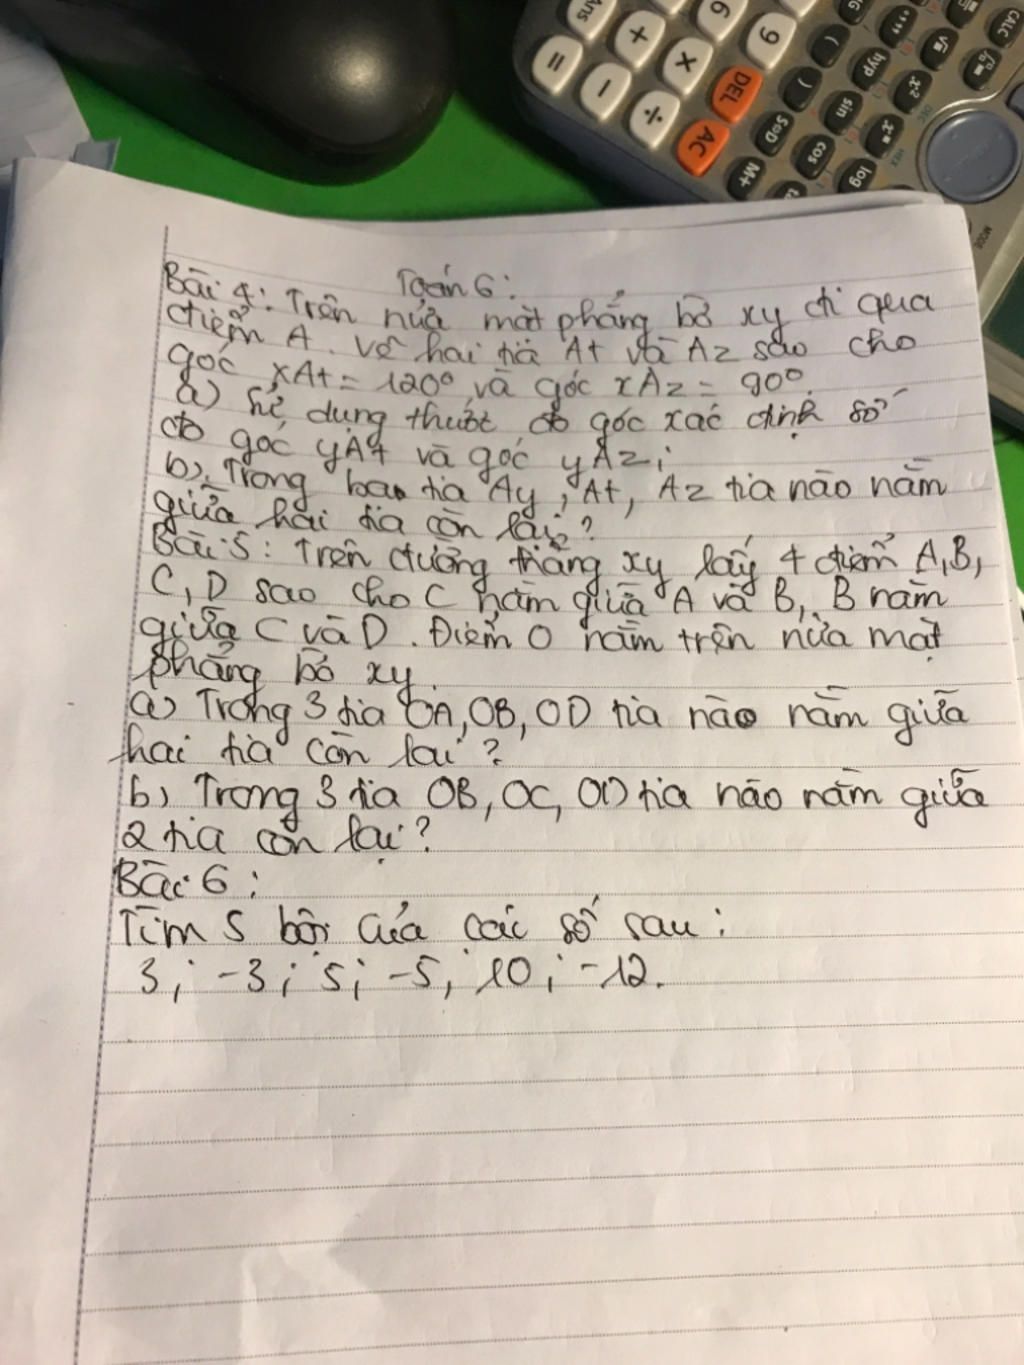 Ans
=
+
-
6
9
×
÷
DEL
AC
(
)
hyp
sin
S⇔D
cos
M+
log
x²
CALC
MODE
Toán 6:
Bài 4: Trên nửa mặt phẳng bờ xy đi qua
điểm A. Vẽ hai tia At và Az sao cho
góc xAt = 120° và góc xAz = 90°.
a) sử dụng thước đo góc xác định số
đo góc yAt và góc yAz;
b) Trong ba tia Ay, At, Az tia nào nằm
giữa hai tia còn lại?
Bài 5: Trên đường thẳng xy lấy 4 điểm A,B,
C, D sao cho C nằm giữa A và B, B nằm
giữa C và D. Điểm O nằm trên nửa mặt
phẳng bờ xy.
a) Trong 3 tia OA, OB, OD tia nào nằm giữa
hai tia còn lại?
b) Trong 3 tia OB, OC, OD tia nào nằm giữa
2 tia còn lại?
Bài 6:
Tìm 5 bội của các số sau:
3; -3; 5; -5; 10; -12.